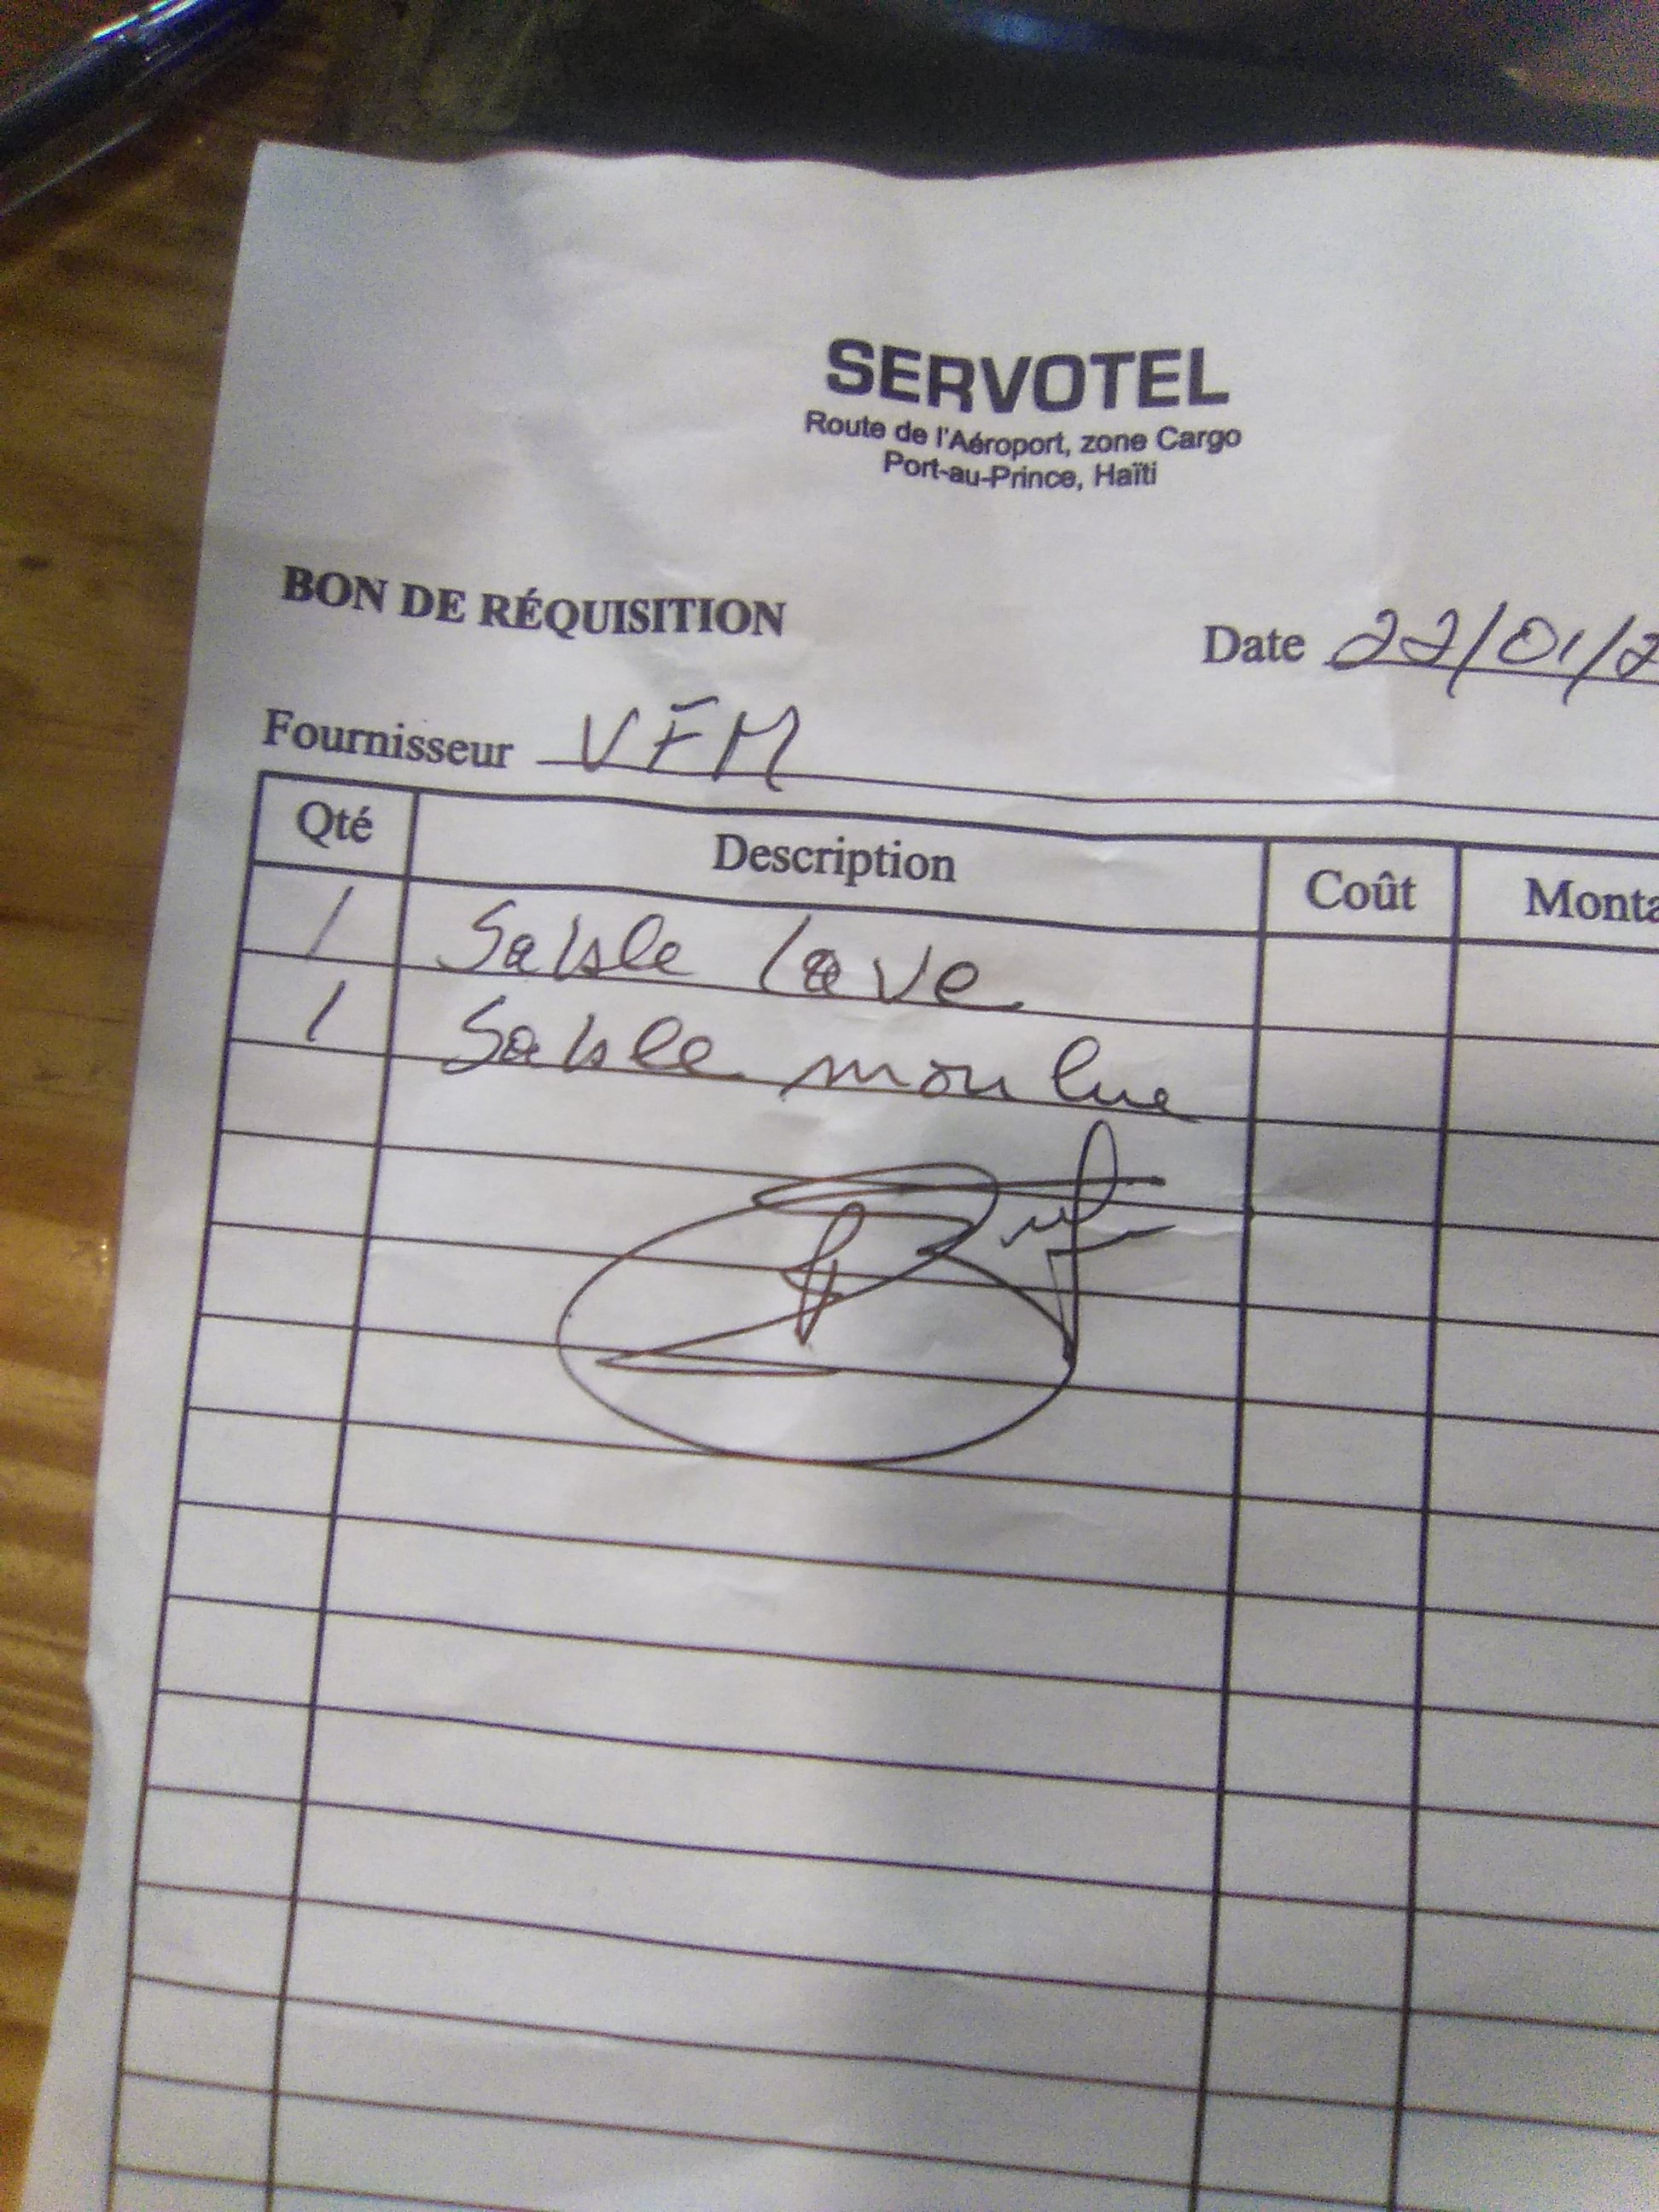 SERVOTEL
Route de l'Aéroport, zone Cargo
Port-au-Prince, Haïti
BON DE RÉQUISITION
Date 22/01/2
Fournisseur VFM
Qté Description Coût Monta
1 Sable lave
1 Sable moulue